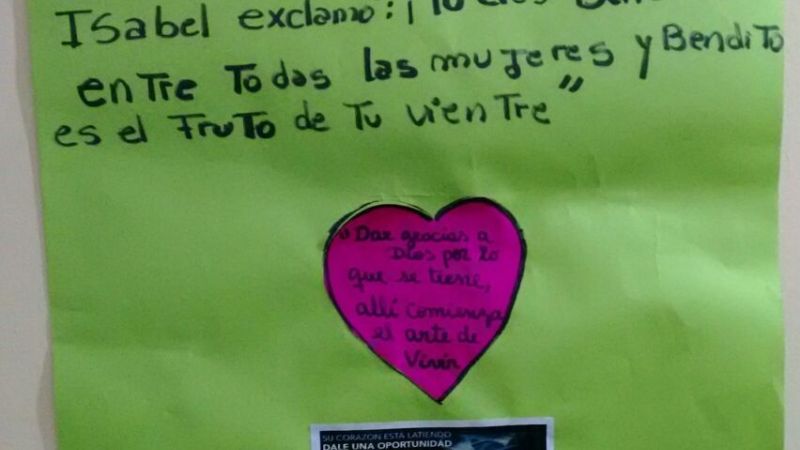 Isabel exclamo: ¡Tú eres
entre Todas las mujeres y Bendito
es el Fruto de Tu vientre"
Dar gracias a
Dios por lo
que se tiene,
allí comienza
el arte de
Vivir
SU CORAZON ESTA LATIENDO
DALE UNA OPORTUNIDAD